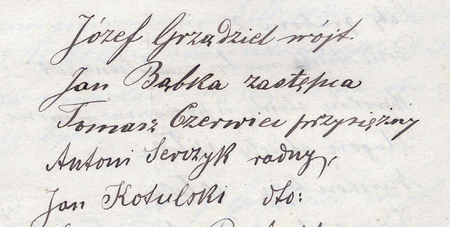 Józef Grządziel wójt.
Jan Bąbka zastępca
Tomasz Czerwiec przysiężny
Antoni Serczyk radny,
Jan Kotulski dto: